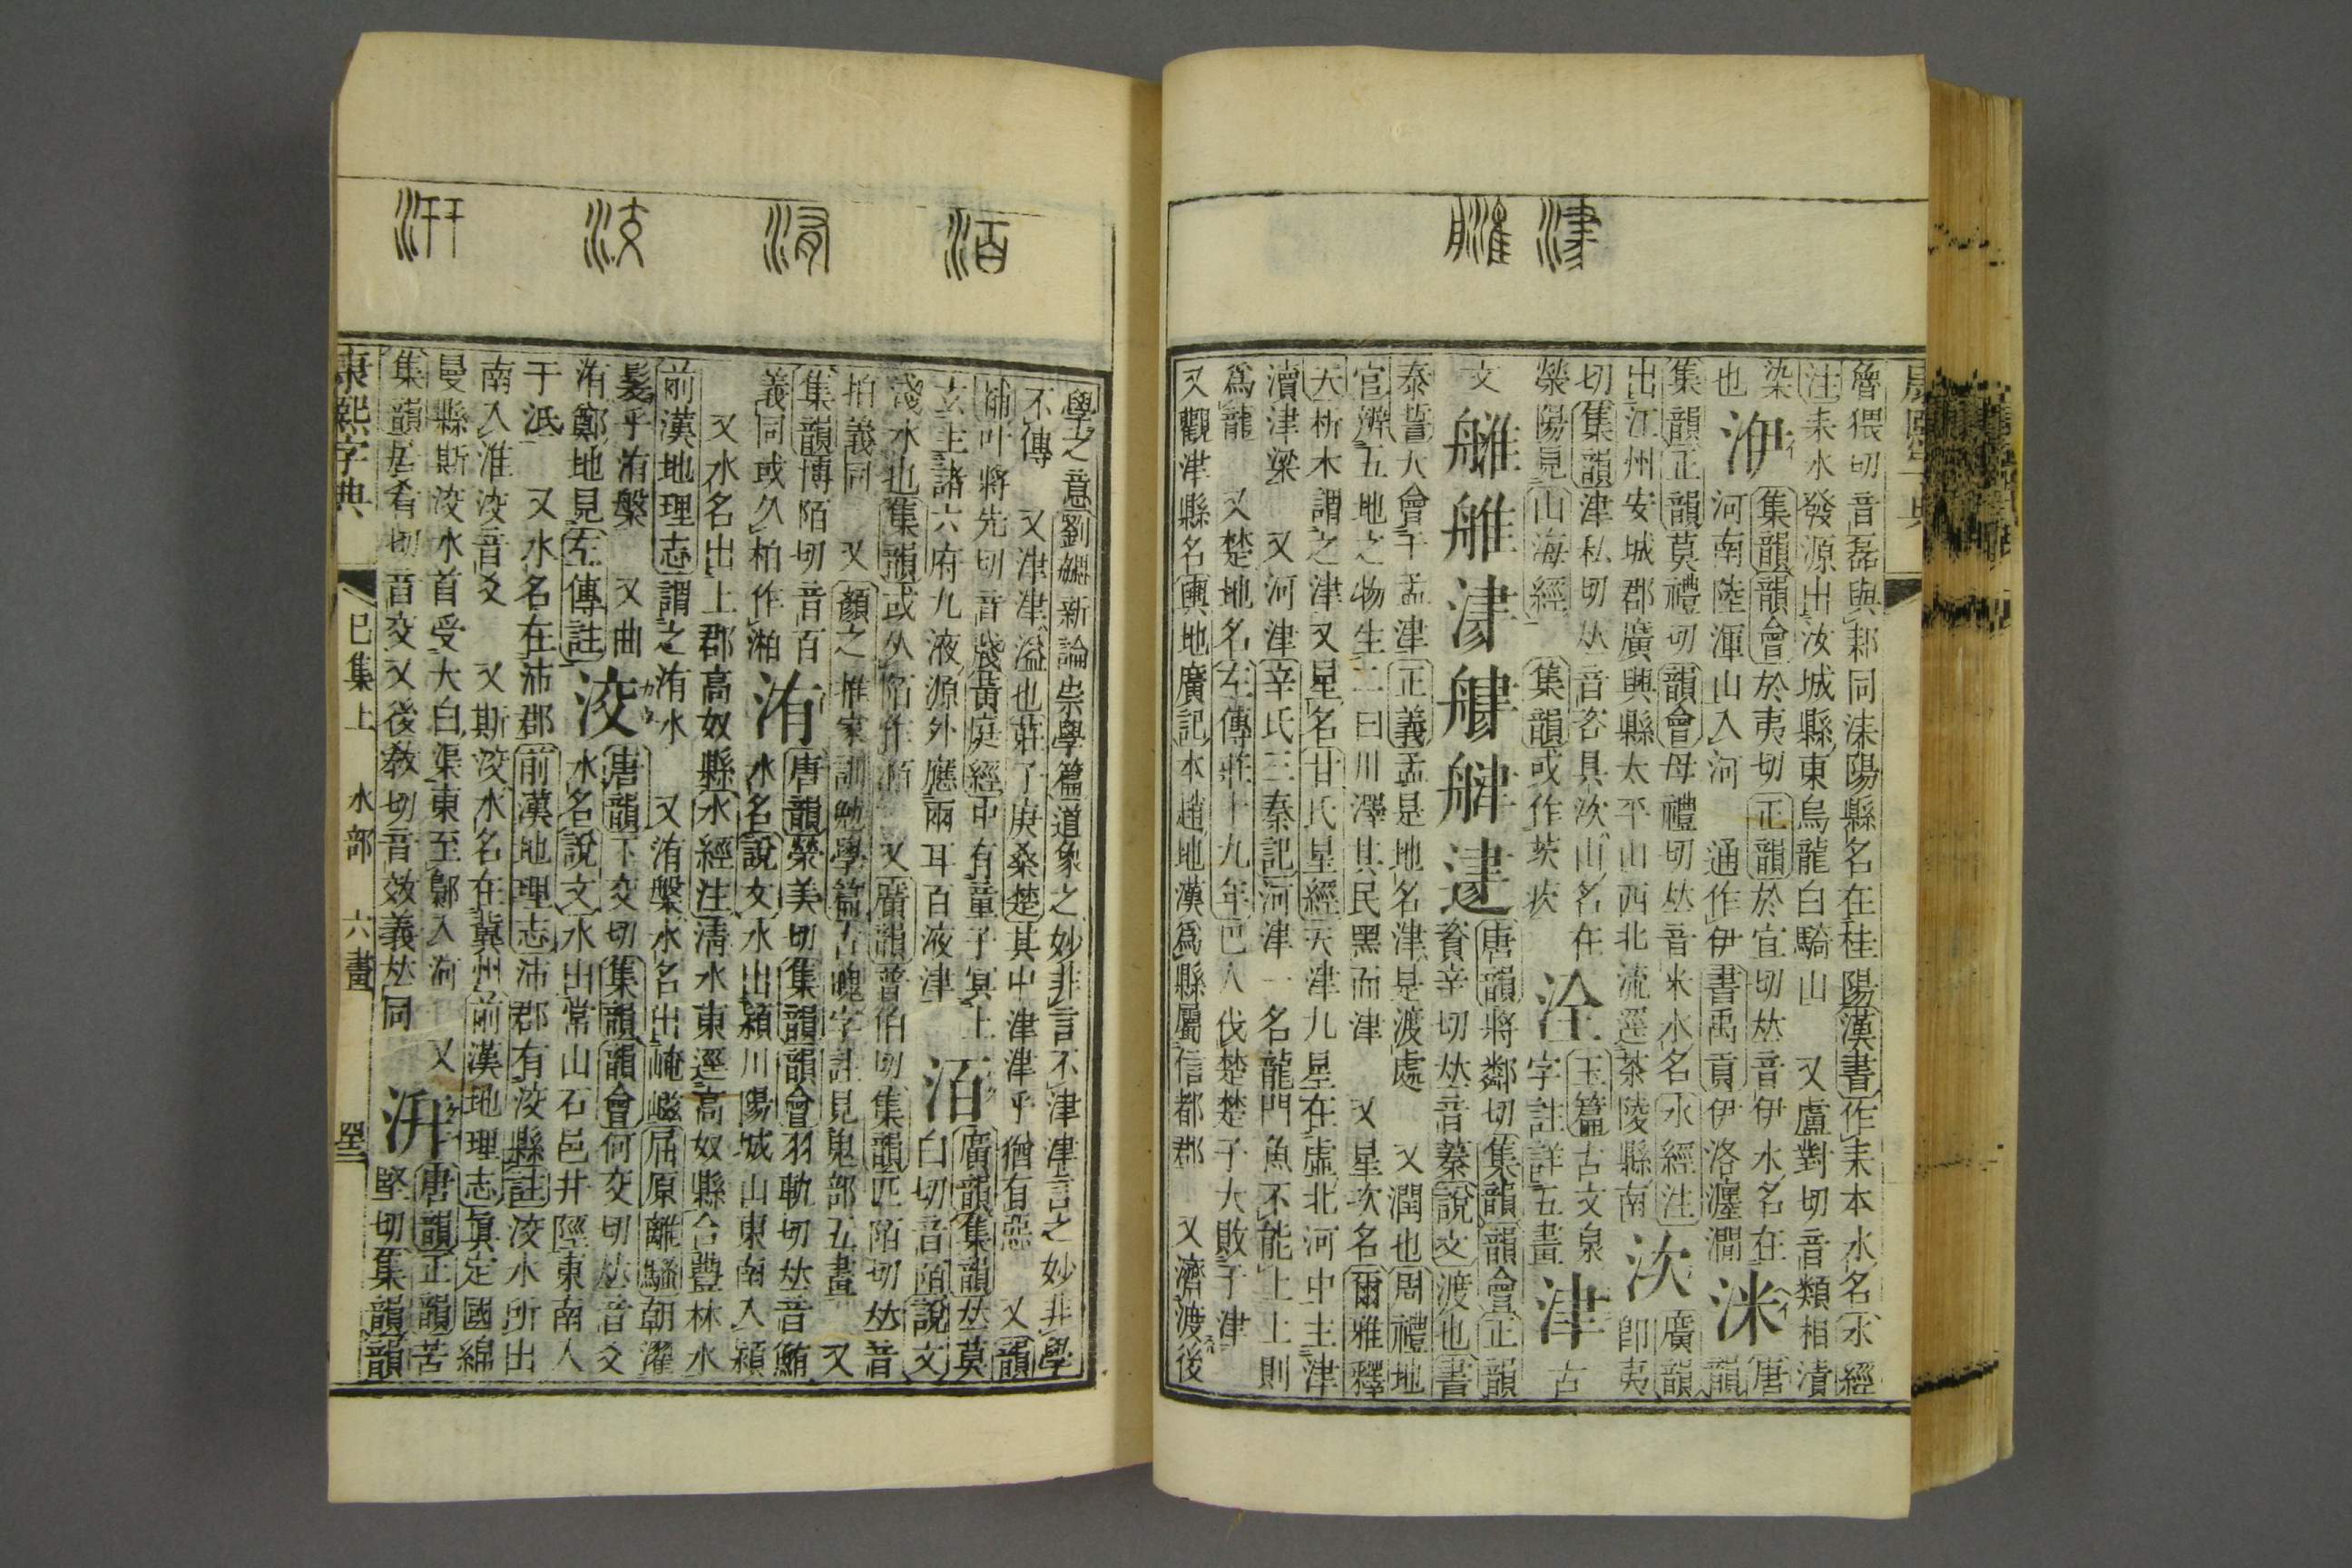 津
洦 洧 洨 汧
魯猥切音磊與耒同洡陽縣名在桂陽漢書作耒本水名水經
注耒水發源出汝城縣東烏龍白騎山 又盧對切音類相漬
染 集韻韻會於夷切正韻於宜切𠀤音伊水名在 唐
也 洢 河南陸渾山入河 通作伊書禹貢伊洛瀍澗 洣 韻
集韻正韻莫禮切韻會母禮切𠀤音米水名水經注 廣韻
出江州安城郡廣興縣太平山西北流逕茶陵縣南 㳄 卽夷
切集韻津私切𠀤音咨具㳄山名在 玉篇古文泉
滎陽見山海經 集韻或作茨㳄 洤 字註詳五畫 津 古
文 唐韻將鄰切集韻韻會正韻
資辛切𠀤音蓁說文渡也書
泰誓大會于孟津正義孟是地名津是渡處 又潤也周禮地
官辨五地之物生二曰川澤其民黑而津 又星次名爾雅釋
天析木謂之津又星名甘氏星經天津九星在虛北河中主津
瀆津梁 又河津辛氏三秦記河津一名龍門魚不能上上則
爲龍 又楚地名左傳莊十九年巴人伐楚楚子大敗于津
又觀津縣名輿地廣記本趙地漢爲縣屬信都郡 又濟渡後
學之意劉嫺新論崇學篇道象之妙非言不津津言之妙非學
不傳 又津津溢也莊子庚桑楚其中津津乎猶有惡 又韻
補叶將先切音濺黃庭經中有童子冥上
玄主諸六府九液源外應兩耳百液津 洦 廣韻集韻𠀤莫
白切音陌說文
淺水也集韻或从陌作 又廣韻普伯切集韻匹陌切𠀤音
拍義同 又顏之推家訓勉學篇古魄字註見鬼部五畫 又
集韻博陌切音百
義同或久柏作湘 洧 唐韻榮美切集韻韻會羽軌切𠀤音鮪
水名說文水出潁川陽城山東南入潁
又水名出上郡高奴縣水經注清水東逕高奴縣合豐林水
前漢地理志謂之洧水 又洧槃水名出崦嵫屈原離騷朝濯
髮乎洧槃 又曲
洧鄭地見左傳註 洨 唐韻下交切集韻韻會何交切𠀤音爻
水名說文水出常山石邑井陘東南入
于泜 又水名在沛郡前漢地理志沛郡有洨縣註洨水所出
南入淮洨音爻 又斯洨水名在冀州前漢地理志眞定國綿
曼縣斯洨水首受大白渠東至鄡入河
集韻居肴切音交又後敎切音效義𠀤同 又 汧 唐韻正韻苦
堅切集韻韻
康熙字典 巳集上 水部 六畫